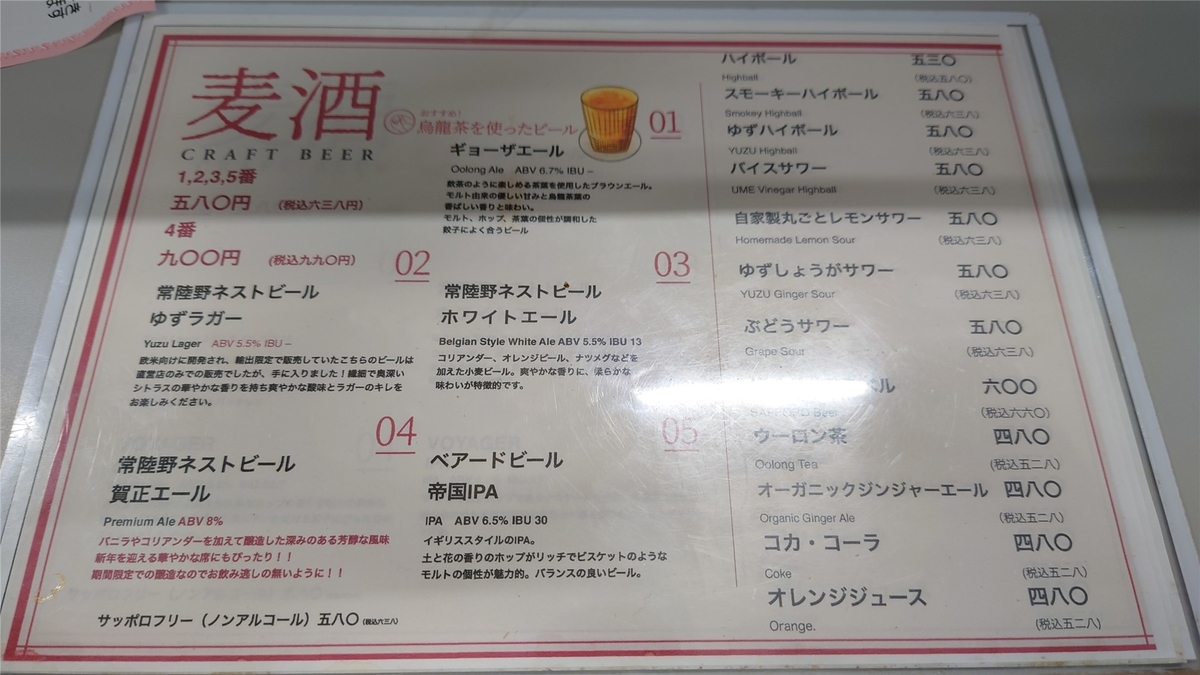 麦酒
CRAFT BEER
1,2,3,5番
五八〇円 (税込六三八円)
4番
九〇〇円 (税込九九〇円)
おすすめ!
烏龍茶を使ったビール
01
ギョーザエール
Oolong Ale ABV 6.7% IBU –
飲茶のように楽しめる茶葉を使用したブラウンエール。
モルト由来の優しい甘みと烏龍茶葉の
香ばしい香りと味わい。
モルト、ホップ、茶葉の個性が調和した
餃子によく合うビール
02
常陸野ネストビール
ゆずラガー
Yuzu Lager ABV 5.5% IBU –
欧米向けに開発され、輸出限定で販売していたこちらのビールは
直営店のみでの販売でしたが、手に入りました!繊細で奥深い
シトラスの華やかな香りを持ち爽やかな酸味とラガーのキレを
お楽しみください。
03
常陸野ネストビール
ホワイトエール
Belgian Style White Ale ABV 5.5% IBU 13
コリアンダー、オレンジピール、ナツメグなどを
加えた小麦ビール。爽やかな香りに、柔らかな
味わいが特徴的です。
04
常陸野ネストビール
賀正エール
Premium Ale ABV 8%
バニラやコリアンダーを加えて醸造した深みのある芳醇な風味
新年を迎える華やかな席にもぴったり!!
期間限定での醸造なのでお飲み逃しの無いように!!
05
ベアードビール
帝国IPA
IPA ABV 6.5% IBU 30
イギリススタイルのIPA。
土と花の香りのホップがリッチでビスケットのような
モルトの個性が魅力的。バランスの良いビール。
サッポロフリー(ノンアルコール)五八〇(税込六三八)
ハイボール 五三〇
Highball (税込五八〇)
スモーキーハイボール 五八〇
Smokey Highball (税込六三八)
ゆずハイボール 五八〇
YUZU Highball (税込六三八)
バイスサワー 五八〇
UME Vinegar Highball (税込六三八)
自家製丸ごとレモンサワー 五八〇
Homemade Lemon Sour (税込六三八)
ゆずしょうがサワー 五八〇
YUZU Ginger Sour (税込六三八)
ぶどうサワー 五八〇
Grape Sour (税込六三八)
ル 六〇〇
SAPPORO Beer (税込六六〇)
ウーロン茶 四八〇
Oolong Tea (税込五二八)
オーガニックジンジャーエール 四八〇
Organic Ginger Ale (税込五二八)
コカ・コーラ 四八〇
Coke (税込五二八)
オレンジジュース 四八〇
Orange. (税込五二八)